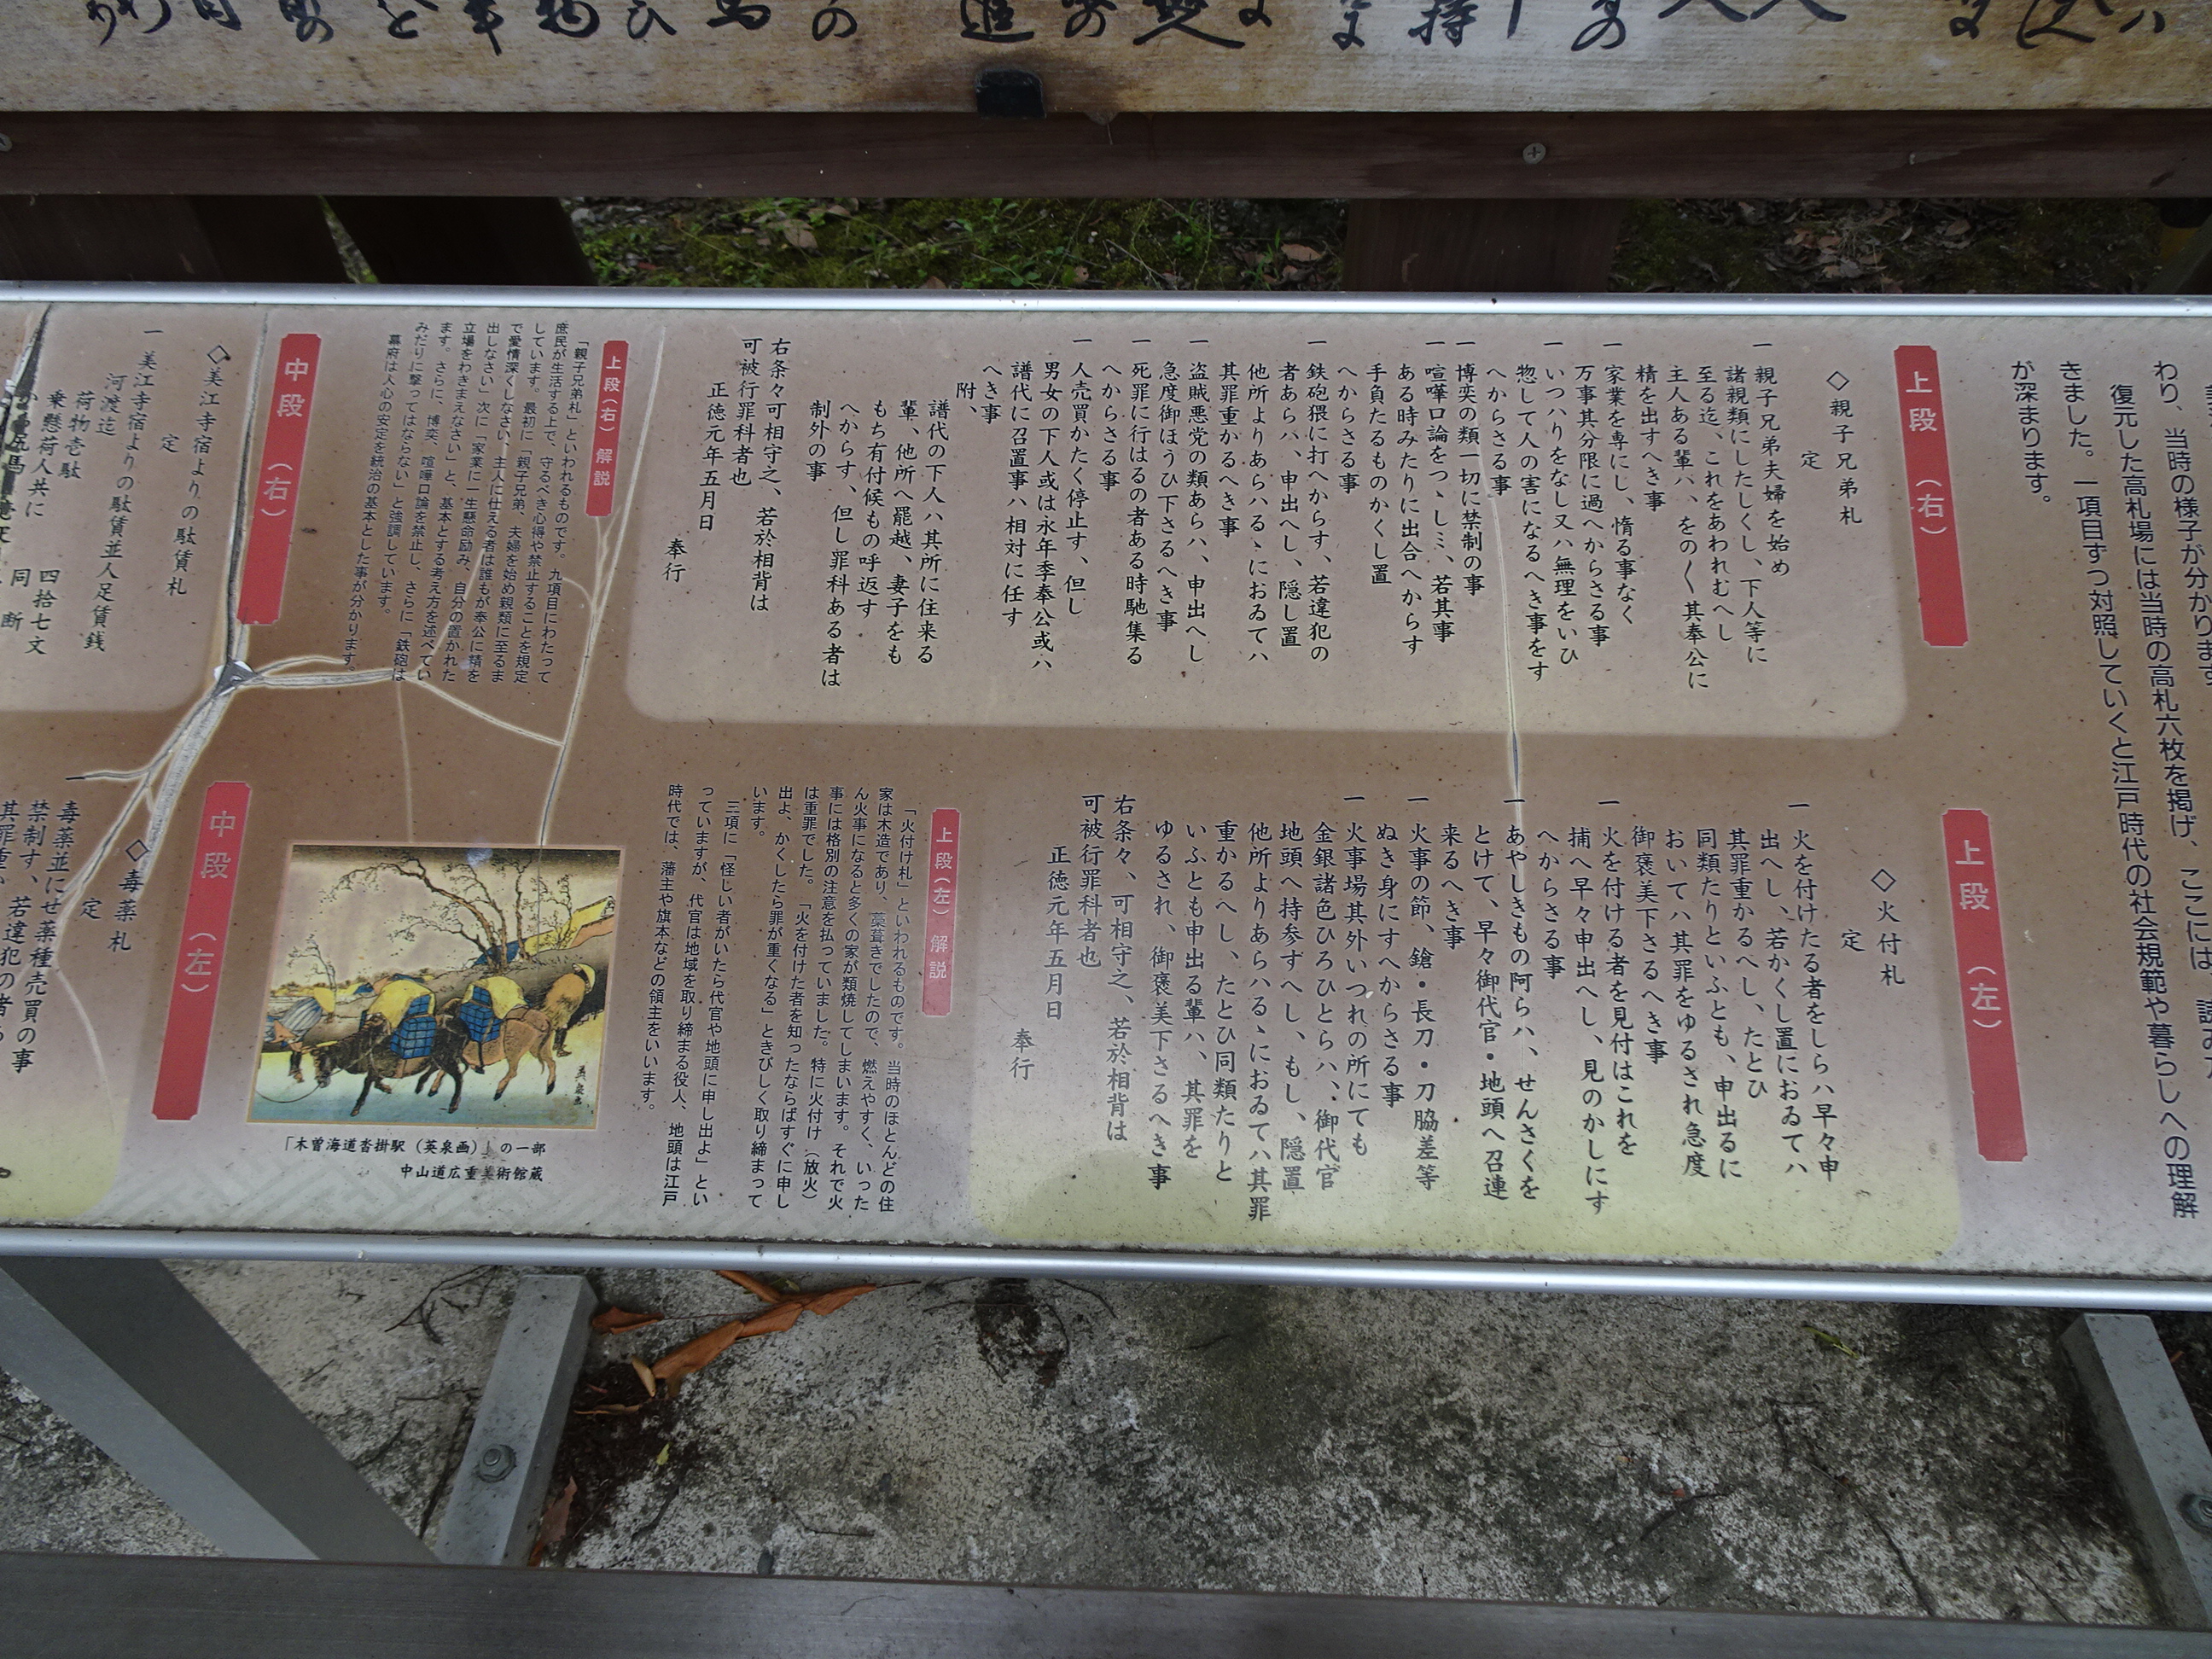 わり、当時の様子が分かります。
復元した高札場には当時の高札六枚を掲げ、ここには、読み
きました。一項目ずつ対照していくと江戸時代の社会規範や暮らしへの理解
が深まります。
上段（右）
◇親子兄弟札
定
一 親子兄弟夫婦を始め
諸親類にしたしくし、下人等に
至る迄、これをあわれむへし
主人ある輩ハ、をのく其奉公に
精を出すへき事
一 家業を専にし、惰る事なく
万事其分限に過へからさる事
一 いつハりをなし又ハ無理をいひ
惣して人の害になるへき事をす
へからさる事
一 博奕の類一切に禁制の事
一 喧嘩口論をつゝしミ、若其事
ある時みたりに出合へからす
手負たるものかくし置
へからさる事
一 鉄砲猥に打へからす、若違犯の
者あらハ、申出へし、隠し置
他所よりあらハるゝにおゐてハ
其罪重かるへき事
一 盗賊悪党の類あらハ、申出へし
急度御ほうひ下さるへき事
一 死罪に行はるの者ある時馳集る
へからさる事
一 人売買かたく停止す、但し
男女の下人或は永年季奉公或ハ
譜代に召置事ハ相対に任す
へき事
附、
譜代の下人ハ其所に住来る
輩、他所へ罷越、妻子をも
もち有付候もの呼返す
へからす、但し罪科ある者は
制外の事
右条々可相守之、若於相背は
可被行罪科者也
正徳元年五月日
奉行
上段（右）解説
「親子兄弟札」といわれるものです。九項目にわたって
庶民が生活する上で、守るべき心得や禁止することを規定
しています。最初に「親子兄弟、夫婦を始め親類に至るま
で愛情深くしなさい、主人に仕える者は誰もが奉公に精を
出しなさい」次に「家業に一生懸命励み、自分の置かれた
立場をわきまえなさい」と、基本とする考え方を述べてい
ます。さらに、博奕、喧嘩口論を禁止し、さらに「鉄砲は
みだりに撃ってはならない」と強調しています。
幕府は人心の安定を統治の基本とした事が分かります。
上段（左）
◇火付札
定
一 火を付けたる者をしらハ早々申
出へし、若かくし置におゐてハ
其罪重かるへし、たとひ
同類たりといふとも、申出るに
おいてハ其罪をゆるされ急度
御褒美下さるへき事
一 火を付ける者を見付はこれを
捕へ早々申出へし、見のかしにす
へからさる事
一 あやしきもの阿らハ、せんさくを
とけて、早々御代官・地頭へ召連
来るへき事
一 火事の節、鎗・長刀・刀脇差等
ぬき身にすへからさる事
一 火事場其外いつれの所にても
金銀諸色ひろひとらハ、御代官
地頭へ持参すへし、もし、隠置
他所よりあらハるゝにおゐてハ其罪
重かるへし、たとひ同類たりと
いふとも申出る輩ハ、其罪を
ゆるされ、御褒美下さるへき事
右条々、可相守之、若於相背は
可被行罪科者也
正徳元年五月日
奉行
上段（左）解説
「火付け札」といわれるものです。当時のほとんどの住
家は木造であり、藁葺きでしたので、燃えやすく、いった
ん火事になると多くの家が類焼してしまいます。それで火
事には格別の注意を払っていました。特に火付け（放火）
は重罪でした。「火を付けた者を知ったならばすぐに申し
出よ、かくしたら罪が重くなる」ときびしく取り締まって
います。
三項に「怪しい者がいたら代官や地頭に申し出よ」とい
っていますが、代官は地域を取り締まる役人、地頭は江戸
時代では、藩主や旗本などの領主をいいます。
「木曽海道沓掛駅（英泉画）」の一部
中山道広重美術館蔵
英泉画
中段（右）
◇美江寺宿よりの駄賃札
定
一 美江寺宿よりの駄賃並人足賃銭
河渡迄
荷物壱駄 四拾七文
乗懸荷人共に 同断
中段（左）
◇毒薬札
定
毒薬並にせ薬種売買の事
禁制す、若違犯の者